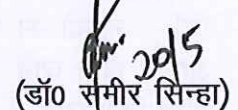 20/5
(डॉ0 समीर सिन्हा)